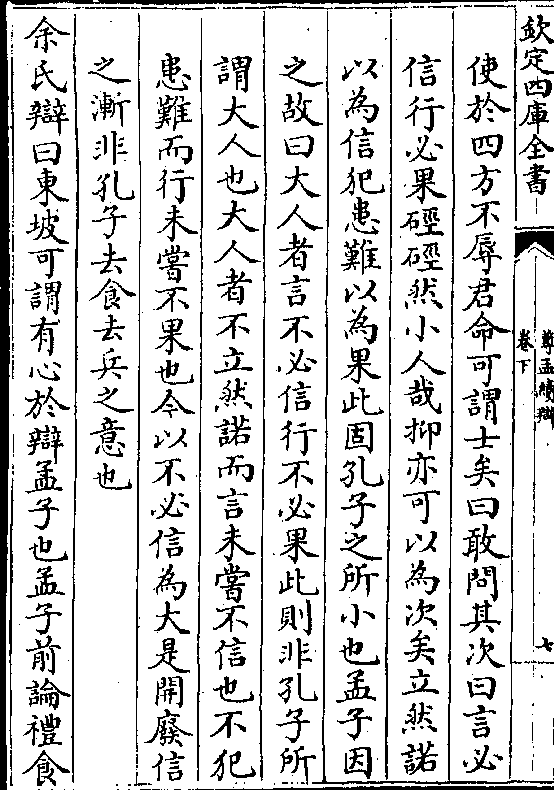 欽定四庫全書
尊孟續辯
卷下
七
使於四方不辱君命可謂士矣曰敢問其次曰言必
信行必果硜硜然小人哉抑亦可以為次矣立然諾
以為信犯患難以為果此固孔子之所小也孟子因
之故曰大人者言不必信行不必果此則非孔子所
謂大人也大人者不立然諾而言未嘗不信也不犯
患難而行未嘗不果也今以不必信為大是開廢信
之漸非孔子去食去兵之意也
余氏辯曰東坡可謂有心於辯孟子也孟子前論禮食